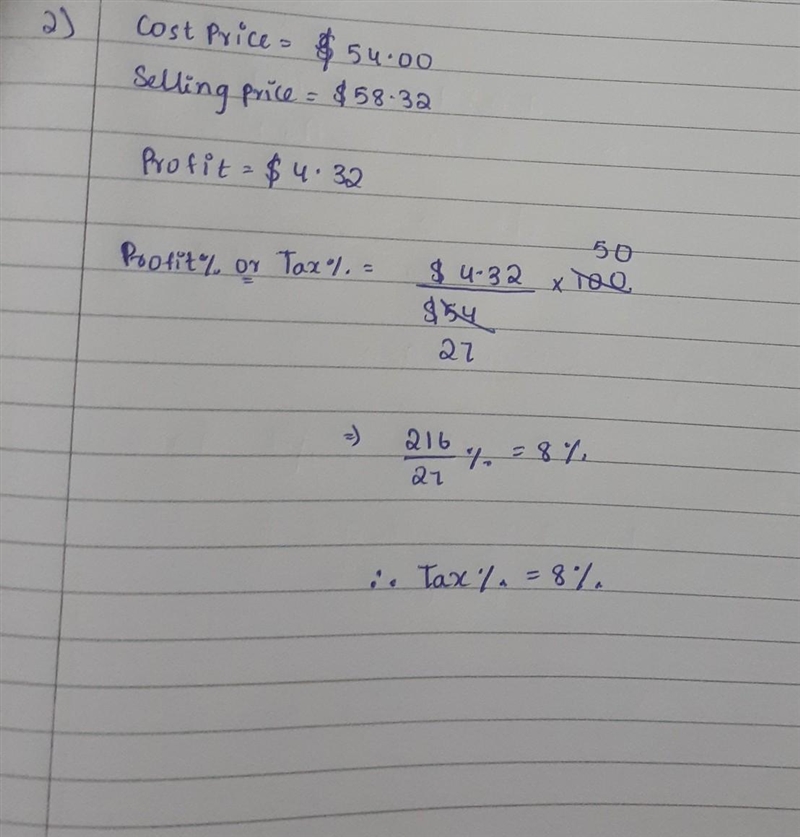 2) Cost Price = $ 54.00
Selling price = $58.32
Profit = $ 4.32
50
Profit% or Tax% = $ 4.32 × 100
$54
27
⇒ 216 % = 8%
27
∴ Tax% = 8%